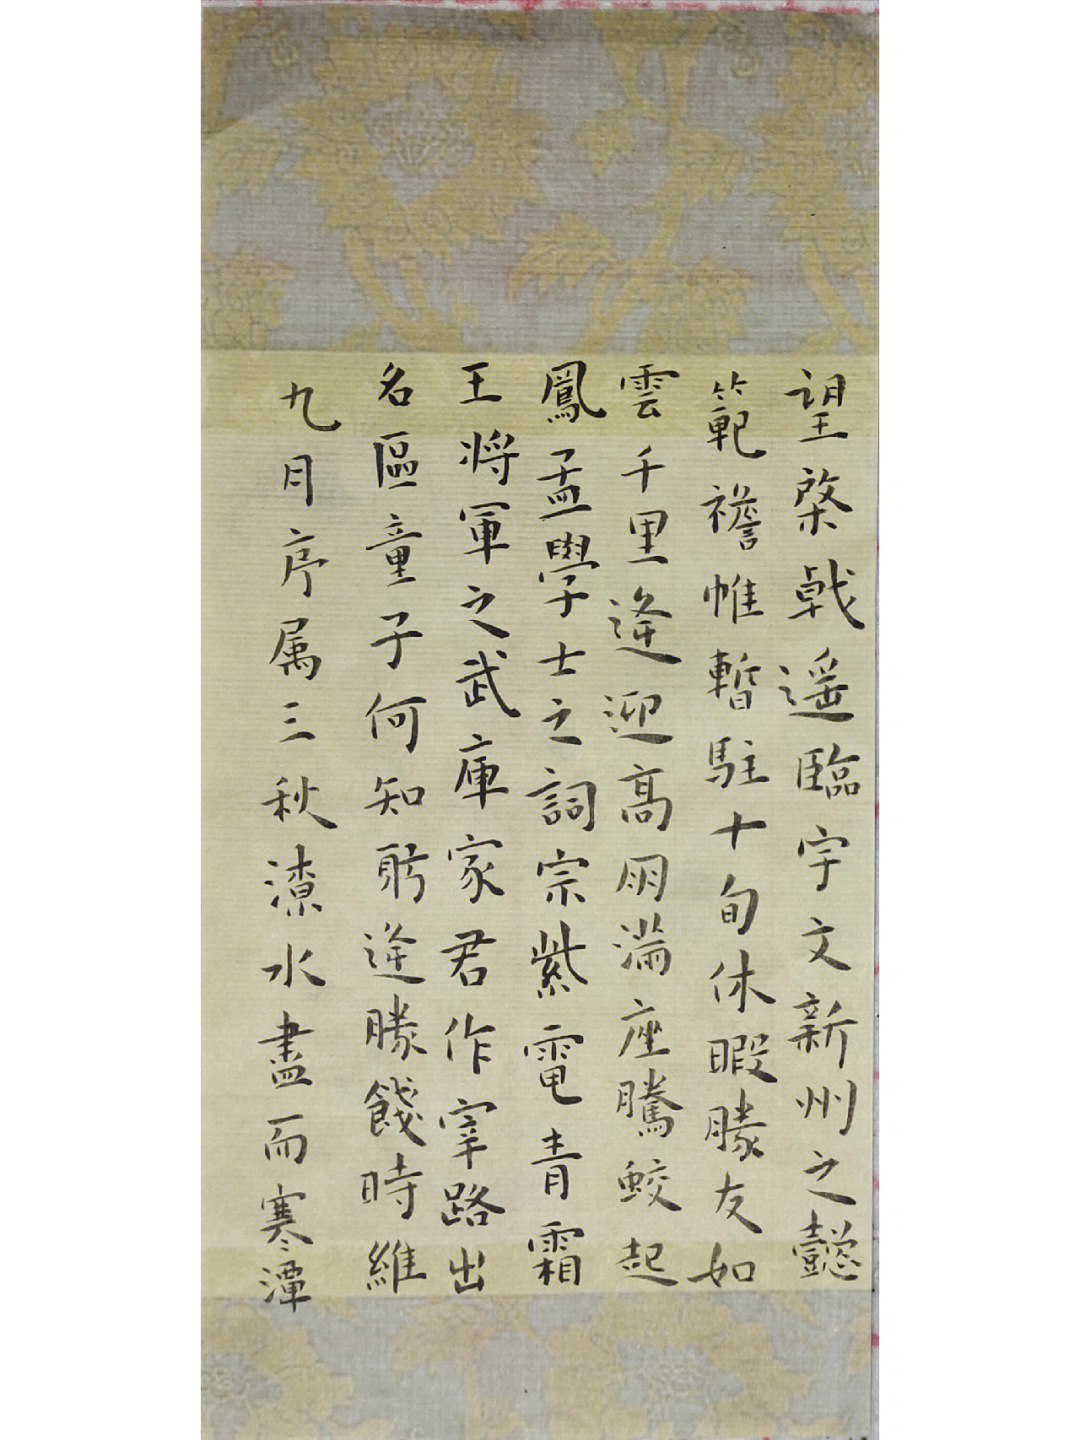 望棨戟遥臨宇文新州之懿
範襜帷暫駐十旬休暇勝友如
雲千里逢迎高朋滿座騰蛟起
鳳孟學士之詞宗紫電青霜
王将軍之武庫家君作宰路出
名區童子何知躬逢勝餞時維
九月序属三秋潦水盡而寒潭